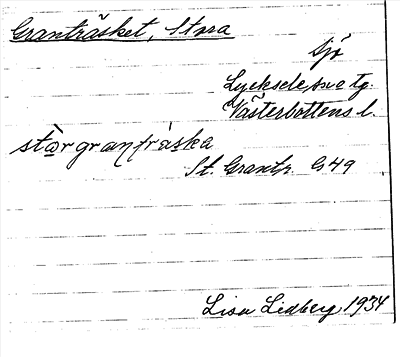 Granträsket, Stora
sjö
Lycksele sn o tg.
Västerbottens l.
stòrgranträ̀ska
St. Grantr. G49
Lisa Lidberg 1934